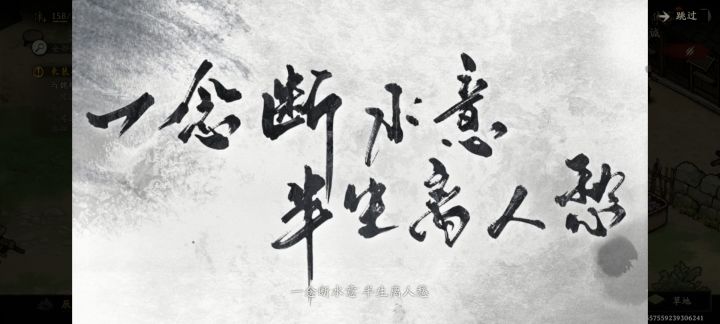 158
跳过
一念断水意
半生离人愁
一念断水意 半生离人愁
草地
557559239306241